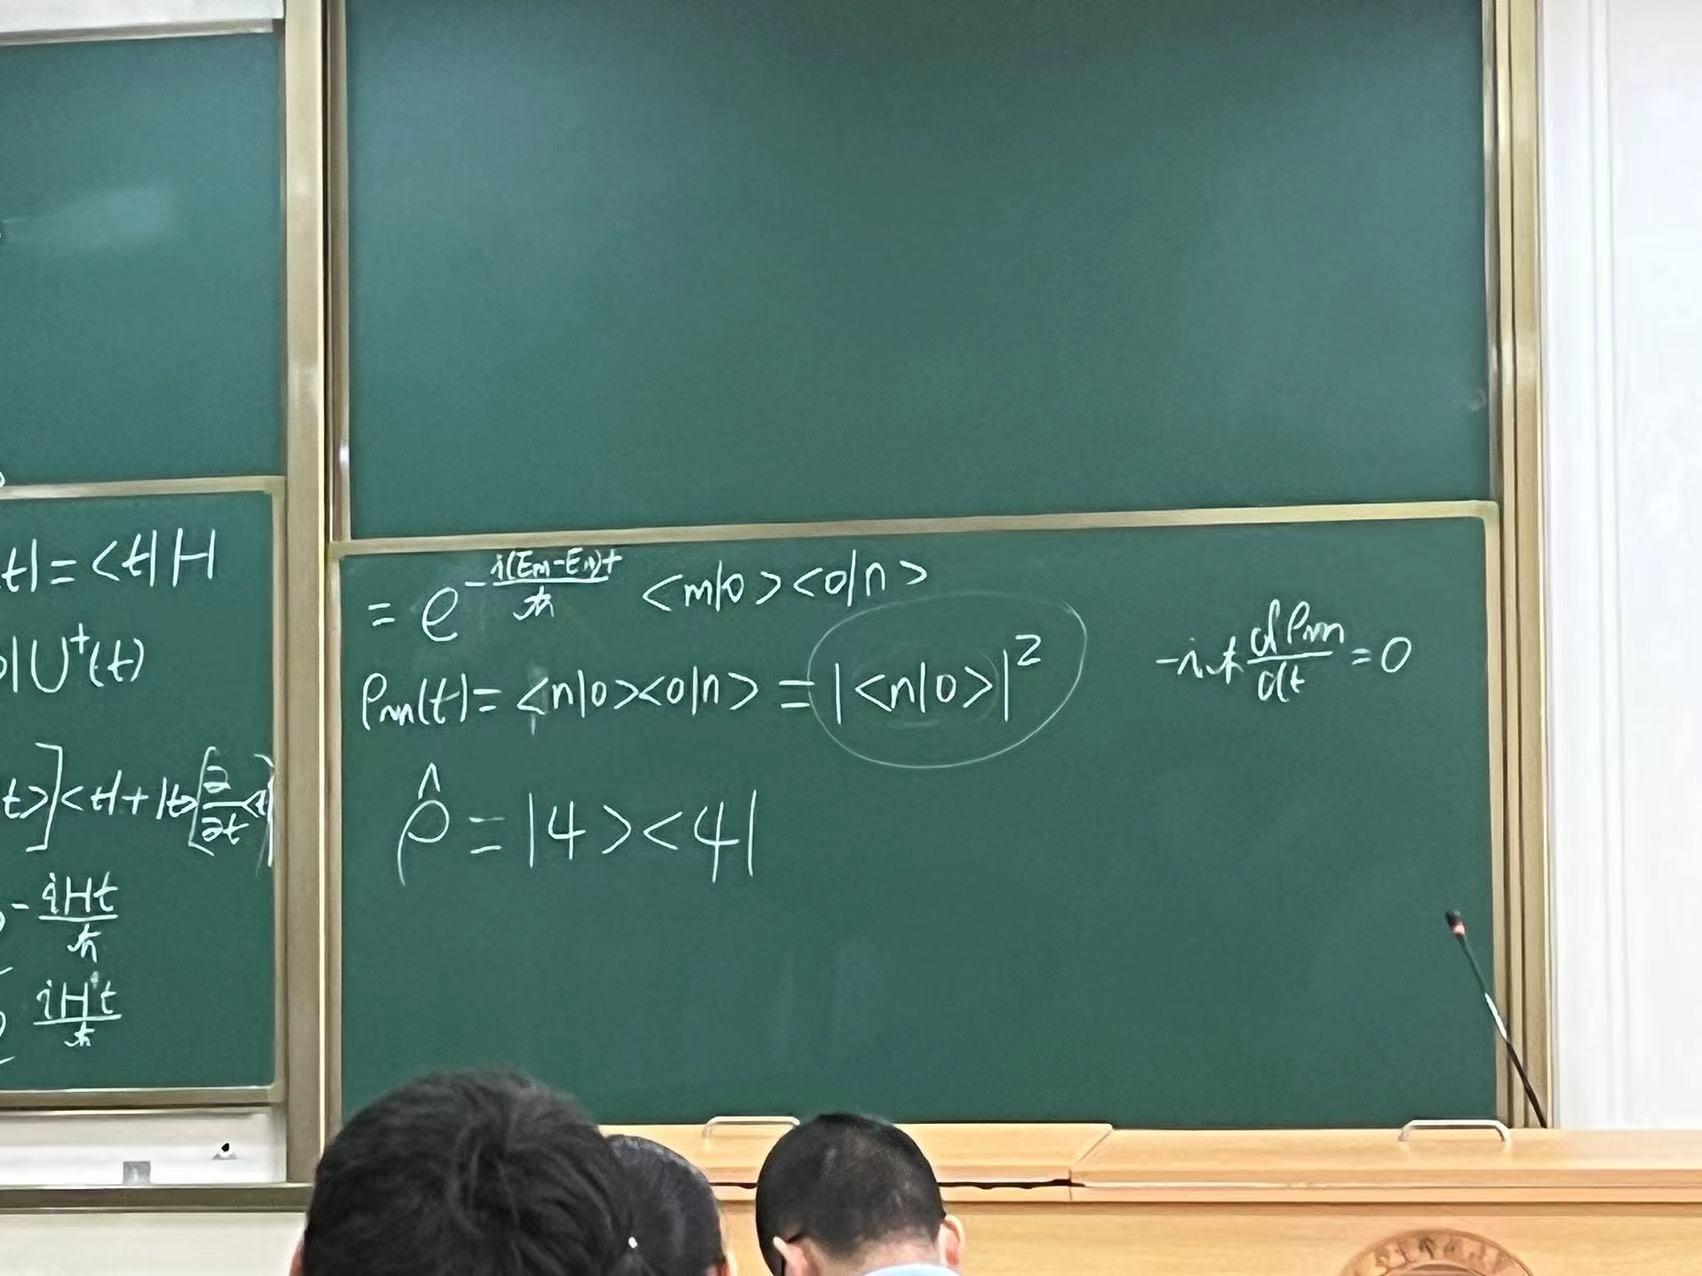 t|=<t|H
|U†(t)
t>]<t|+|t>[∂/∂t<t|
-iHt/ħ
iHt/ħ
= e^{-i(Em-En)t/ħ} <m|0><0|n>
ρnn(t)=<n|0><0|n>=|<n|0>|²
-iħ dρnn/dt=0
ρ̂=|4><4|